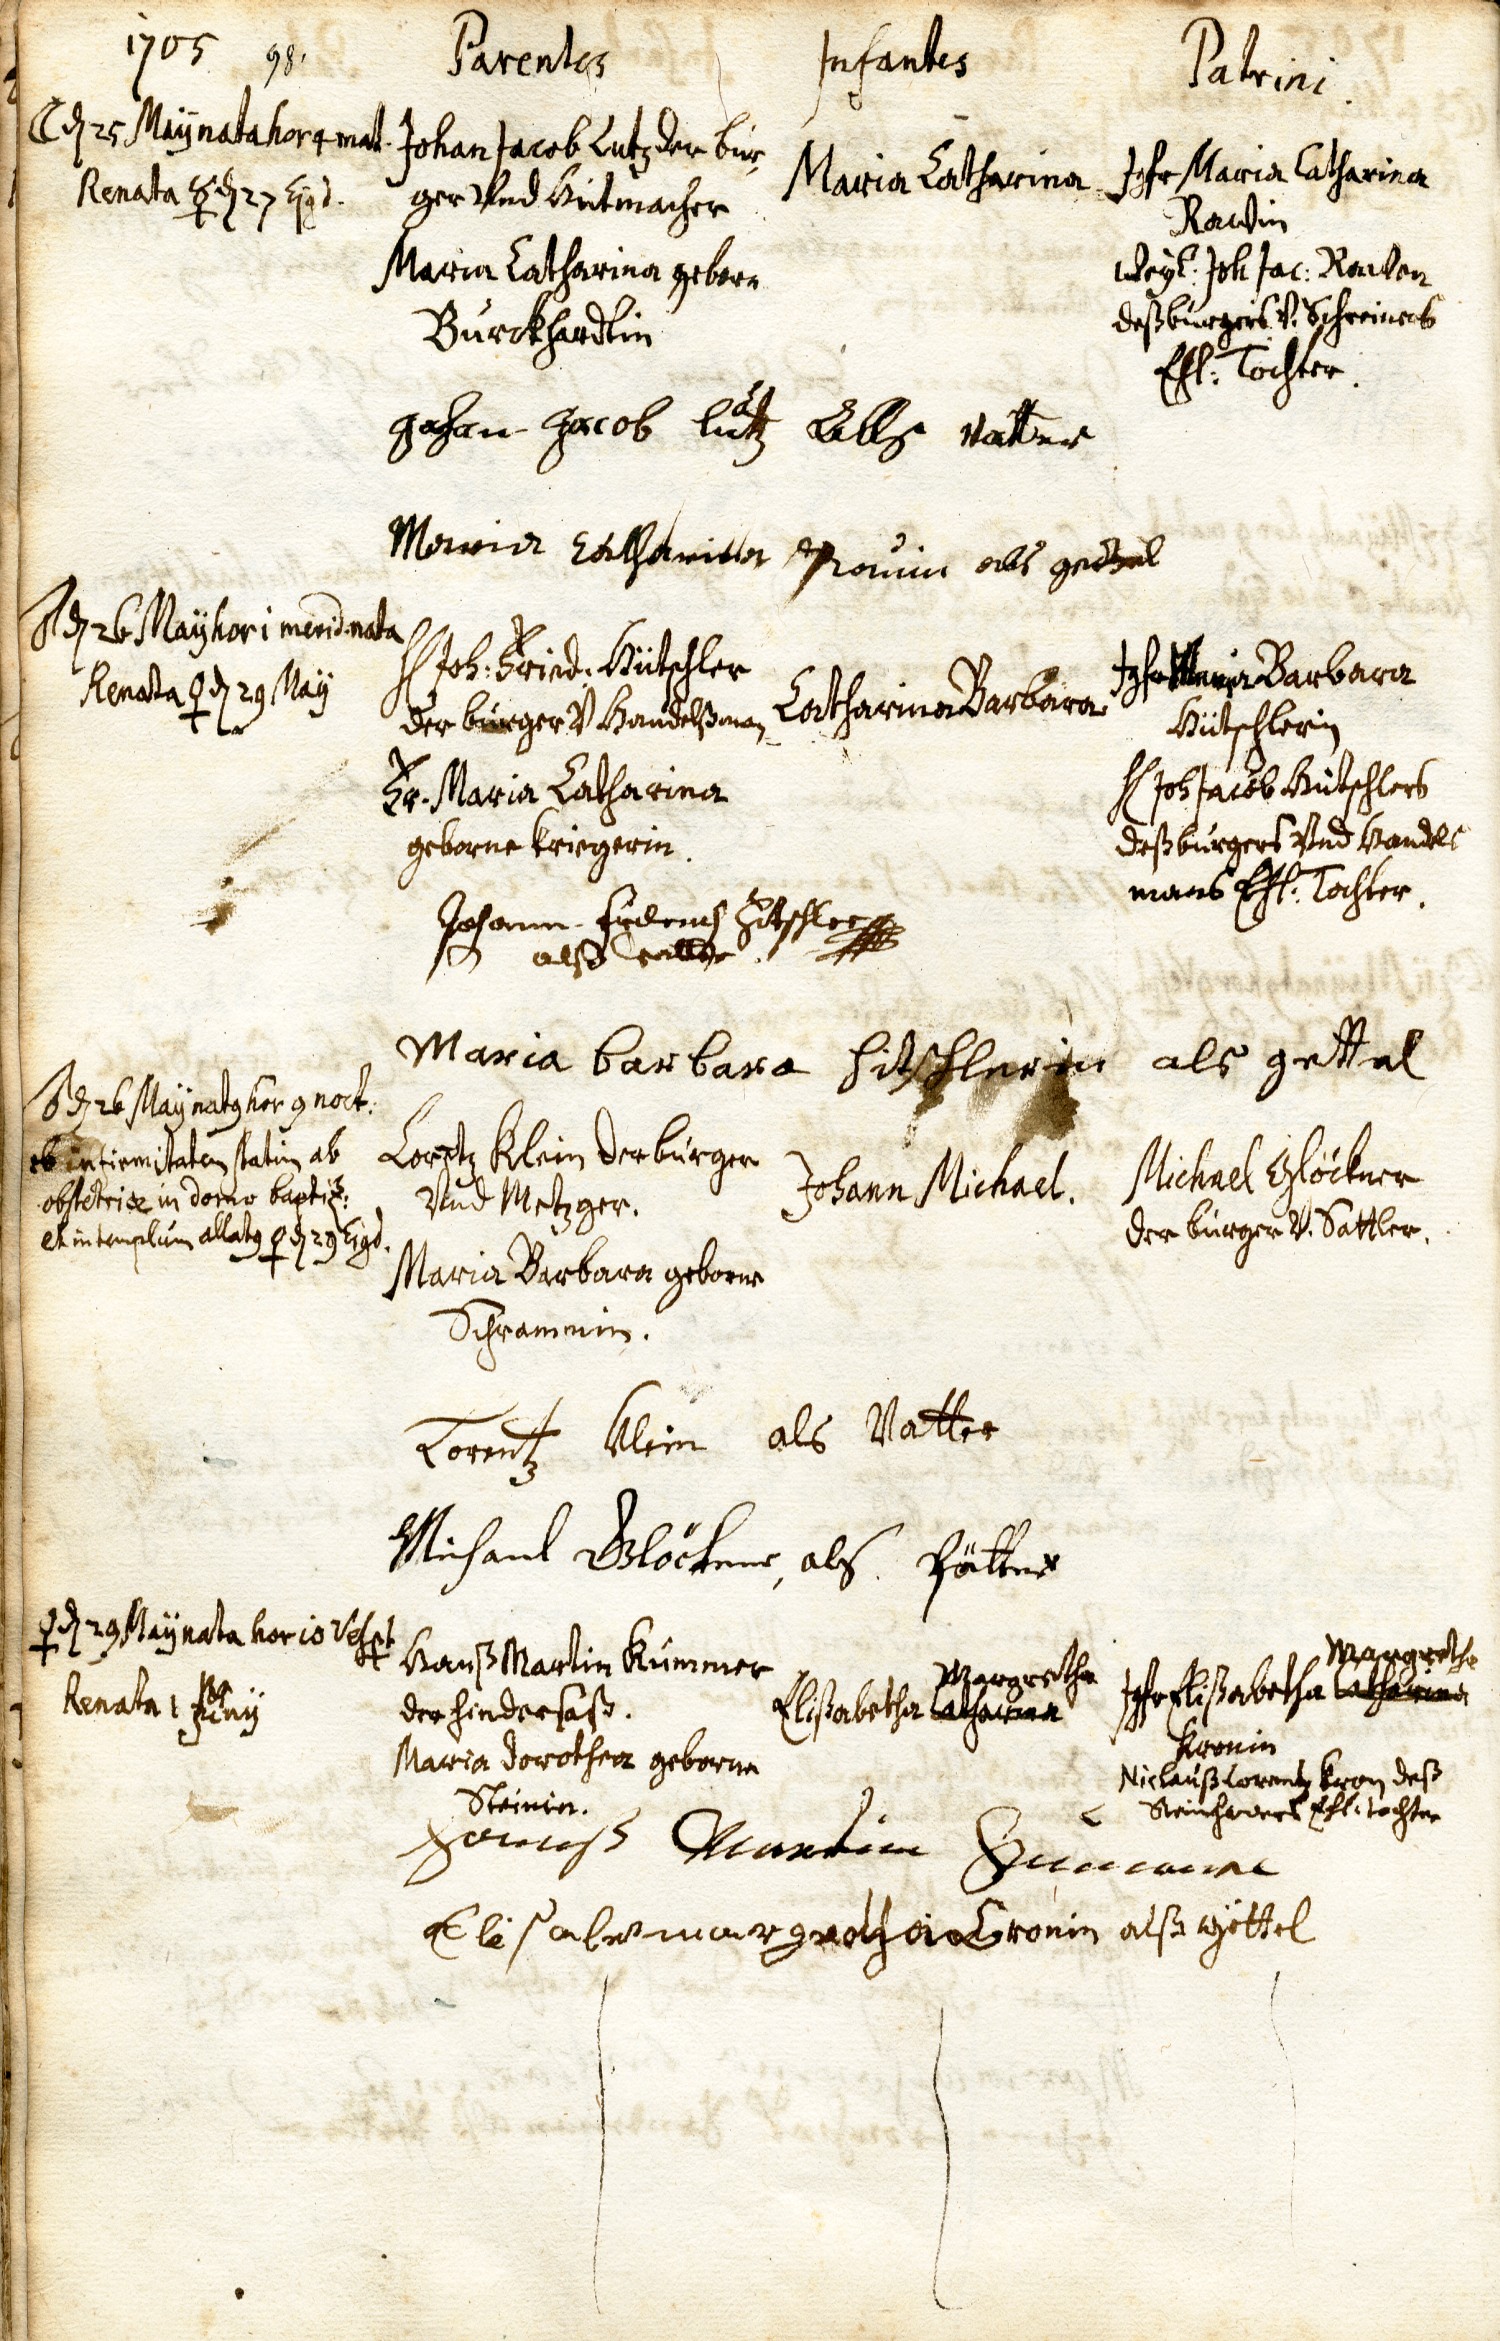 1705
98.
Parentes
Infantes
Patrini.
☾ d. 25 Maÿ nata hor 4 mat.
Renata ☿ d. 27 Ejusd.
Johan Jacob Lutz der bur,
ger Und Hutmacher
Maria Catharina gebore
Burckhardtin
Maria Catharina
Jgfr Maria Catharina
Rawin
Weyl: Joh Jac: Rawen
deß burgers V. Schreiners
Ehl: Tochter.
Johan Jacob lutz allß vatter
Maria Catharina Rauin als gettel
♂ d. 26 Maÿ hor 1 merid. nata
Renata ♀ d. 29 May
H Joh: Fried: Hütschler
der burger V Handelßman
Fr. Maria Catharina
geborne Kriegerin.
Catharina Barbara
Jgfr Maria Barbara
Hütschlerin
H Joh Jacob Hütschlers
deß burgers Und Handels
mans Ehl: Tochter.
Johann friderich Hitschler
alß vatter.
Maria barbara hitschlerin als gettel
♂ d. 26 Maÿ natus hor 9 noct:
ob infirmitatem statim ab
obstetrice in domo baptiz:
et in templum allatus ♀ d. 29 Ejusd.
Lorentz Klein der burger
Und Metzger.
Maria Barbara geborne
Schrammin.
Johann Michael.
Michael Glöckner
der burger V. Sattler.
Lorentz Klein als Vatter
Michael Glöckner, als Pätter
♀ d. 29 Maÿ nata hor 10 Vesp
Renata 1 Juny
Hanß Martin Kummer
der hindersaß.
Maria Dorothea geborne
Steinin.
Margretha
Elißabetha Catharina
Margretha
Jgfr Elißabetha Catharina
Kronin
Niclauß Lorentz Kron deß
Steinhawers Ehl: tochter
Hanß Martin Kummer
Elisabe margretha Cronin alß göttel